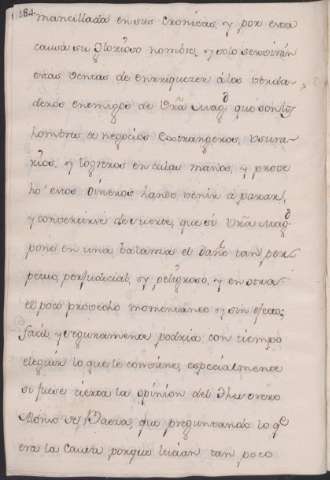 184
mancillada en sus Cronicas, y por esta
causa su glorioso nombre, y solo serviran
estas ventas de enriquecer à los verda-
deros enemigos de Vra Magd que son los
hombres de negocios Estrangeros, Usura-
rios, y logreros en cuias manos, y prove
ho estos dineros han de venir à parar,
y convertirse de suerte, que si Vra Magd
pone en una balanza el daño tan per-
petuo, perjudicial, y peligroso, y en otra
el poco provecho momentaneo y sin efecto,
facil, y seguramente podria con tiempo
elegir lo que le combiene, especialmente
si fuese cierta la opinion del
de que preguntando lo qe
era la causa porque tan poco